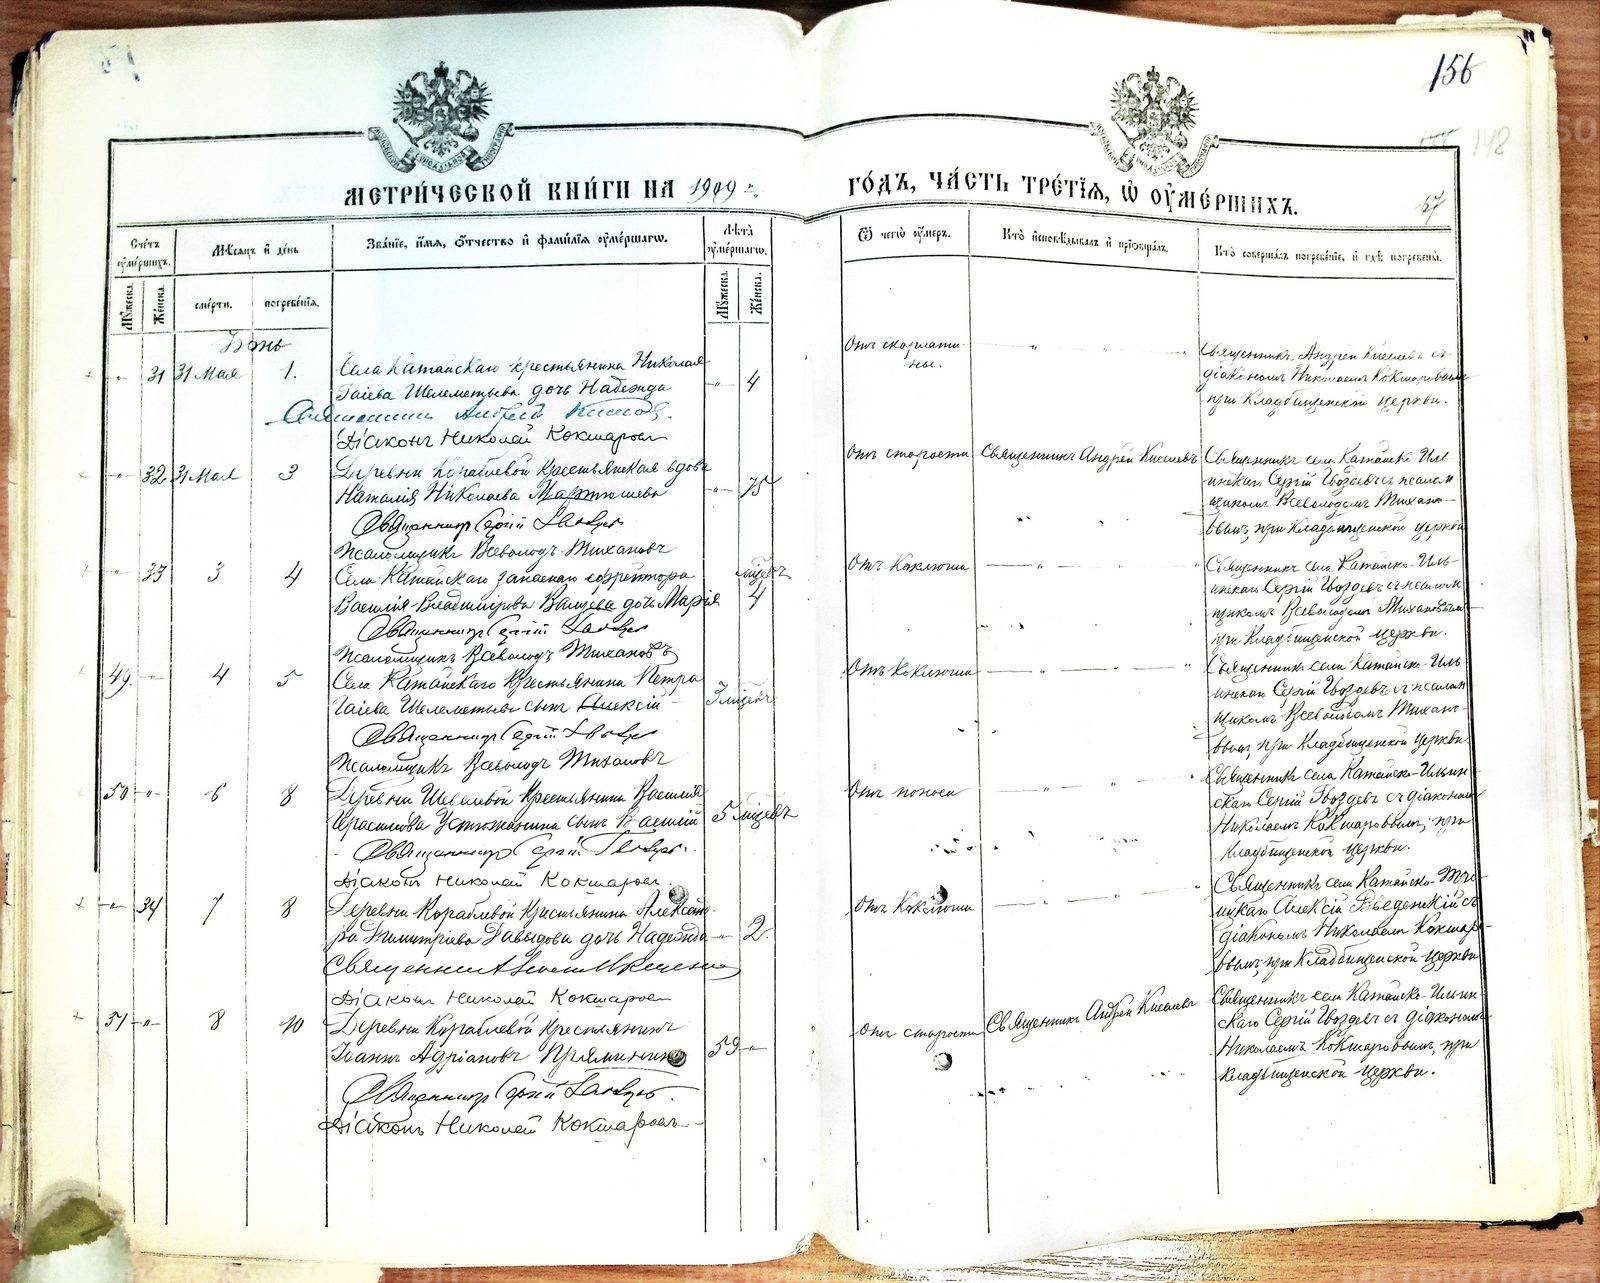 156
148
МЕТРИ́ЧЕСКОЙ КНИ́ГИ НА 1909 г.
ГО́ДЪ, ЧА́СТЬ ТРЕ́ТІЯ, Ѡ ОУМЕ́РШИХЪ.
67
Сче́тъ оуме́ршихъ.
Мѣсяцъ и день
Зва́ніе, и́мя, о́тчество и фами́лія оуме́ршагѡ.
Лѣта оуме́ршагѡ.
Ѿ чегѡ оумеръ.
Кто̀ исповѣдывалъ и пріобщалъ.
Кто соверша́лъ погребе́ніе, и гдѣ погребены.
Мꙋжеска.
Же́нска.
сме́рти.
погребе́нія.
Мꙋжеска.
Же́нска.
Іюнь
31 31 Мая 1. Села Катайскаго крестьянина Николая
Гаіева Шелеметьева дочь Надежда 4
Священникъ Андрей Киселевъ.
Діаконъ Николай Кокшаровъ
Отъ скарлати-
ны.
Священникъ Андрей Киселевъ съ
діакономъ Николаемъ Кокшаровымъ
при Кладбищенской церкви.
32 31 Мая 3 Деревни Кораблевой крестьянская вдова
Наталія Николаева Мартюшева 75
Священникъ Сергій Гвоздевъ
Псаломщикъ Всеволодъ Тихановъ
Отъ старости Священникъ Андрей Киселевъ
Священникъ села Катайско-Иль-
инскаго Сергій Гвоздевъ съ псалом-
щикомъ Всеволодомъ Тихано-
вымъ, при Кладбищенской церкви
33 3 4 Села Катайскаго запаснаго ефрейтора мѣсяц.
Василія Владимірова дочь Марія 4
Священникъ Сергій Гвоздевъ
Псаломщикъ Всеволодъ Тихановъ
Отъ Коклюша
Священникъ села Катайско-Иль-
инскаго Сергій Гвоздевъ съ псалом-
щикомъ Всеволодомъ Тихановымъ
при Кладбищенской церкви.
49. 4 5 Села Катайскаго Крестьянина Петра
Гаіева Шелеметьева сынъ Алексій 3 мѣсяц.
Священникъ Сергій Гвоздевъ
Псаломщикъ Всеволодъ Тихановъ
Отъ Коклюша
Священникъ села Катайско-Иль-
инскаго Сергій Гвоздевъ съ псалом-
щикомъ Всеволодомъ Тихано-
вымъ, при Кладбищенской церкви
50 6 8 Деревни Шевелевой Крестьянина Василія
Герасимова Устюжанина сынъ Василій 5 мѣсяц.
Священникъ Сергій Гвоздевъ.
Діаконъ Николай Кокшаровъ.
Отъ поноса
Священникъ села Катайско-Ильин-
скаго Сергій Гвоздевъ съ діакономъ
Николаемъ Кокшаровымъ, при
Кладбищенской церкви.
34 7 8 Деревни Кораблевой Крестьянина Александ-
ра Димитріева Давыдова дочь Надежда 2.
Священникъ
Діаконъ Николай Кокшаровъ
Отъ Коклюша
Священникъ села Катайско-Тро-
ицкаго Алексій Введенскій съ
діакономъ Николаемъ Кокшаро-
вымъ, при Кладбищенской церкви
51 8 10 Деревни Кораблевой Крестьянинъ
Іоаннъ Адріановъ Прямининъ 59
Священникъ Сергій Гвоздевъ.
Діаконъ Николай Кокшаровъ
Отъ старости Священникъ Андрей Киселевъ
Священникъ села Катайско-Ильин-
скаго Сергій Гвоздевъ съ діакономъ
Николаемъ Кокшаровымъ, при
Кладбищенской церкви.